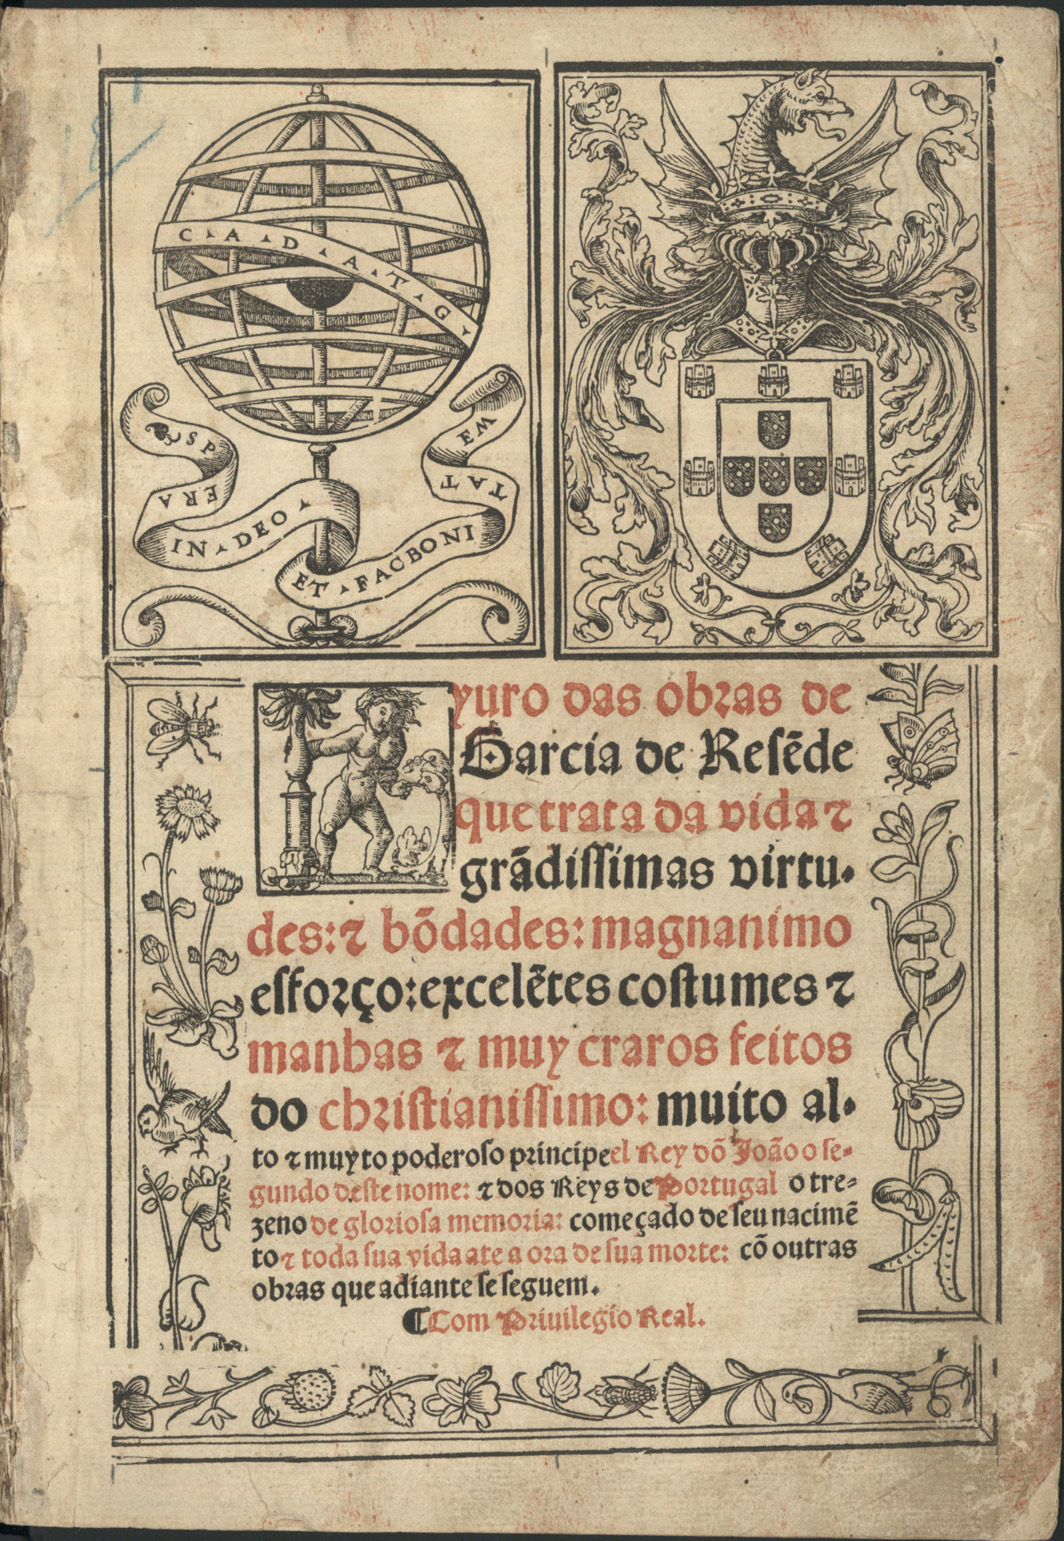 C A D A T G
SPERA
IN DEO
ET FACBONI
TATEM
yuro das obras de
Garcia de Resẽde
que trata da vida ⁊
grãdissimas virtu-
des: ⁊ bõdades: magnanimo
esforço: excelẽtes costumes ⁊
manhas ⁊ muy craros feitos
do christianissimo: muito al-
to ⁊ muyto poderoso principe el Rey dõ João o se-
gundo deste nome: ⁊ dos Reys de Portugal o tre-
zeno de gloriosa memoria: começado de seu nacimẽ
to ⁊ toda sua vida ate a ora de sua morte: cõ outras
obras que adiante se seguem.
¶ Com Priuilegio Real.